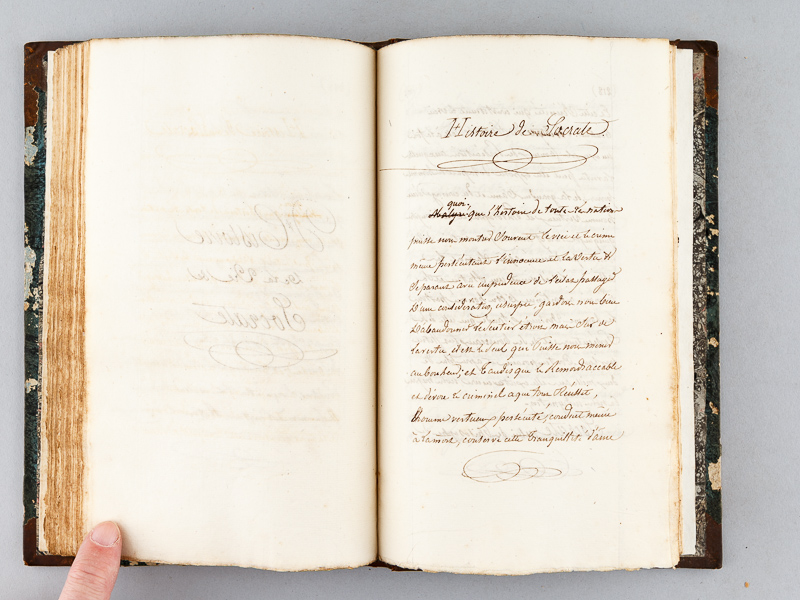 Histoire de Socrate.
quoi-
que l'histoire de toute le nation
puisse nous montrer souvent le vice et le crime
même persécutant l'innocence et la vertu &
se parant avec impudence de l'éclat passager
D'une considération usurpée, gardon nous bien
D'abandonner le sentier étroit mais sur de
la vertu, il est le seul qui puisse nous mener
au bonheur; et tandis que le Remord accable
et dévore le criminel a qui tout Réussit,
l'homme vertueux persécuté, conduit même
à la mort, conserve cette tranquillité d'ame